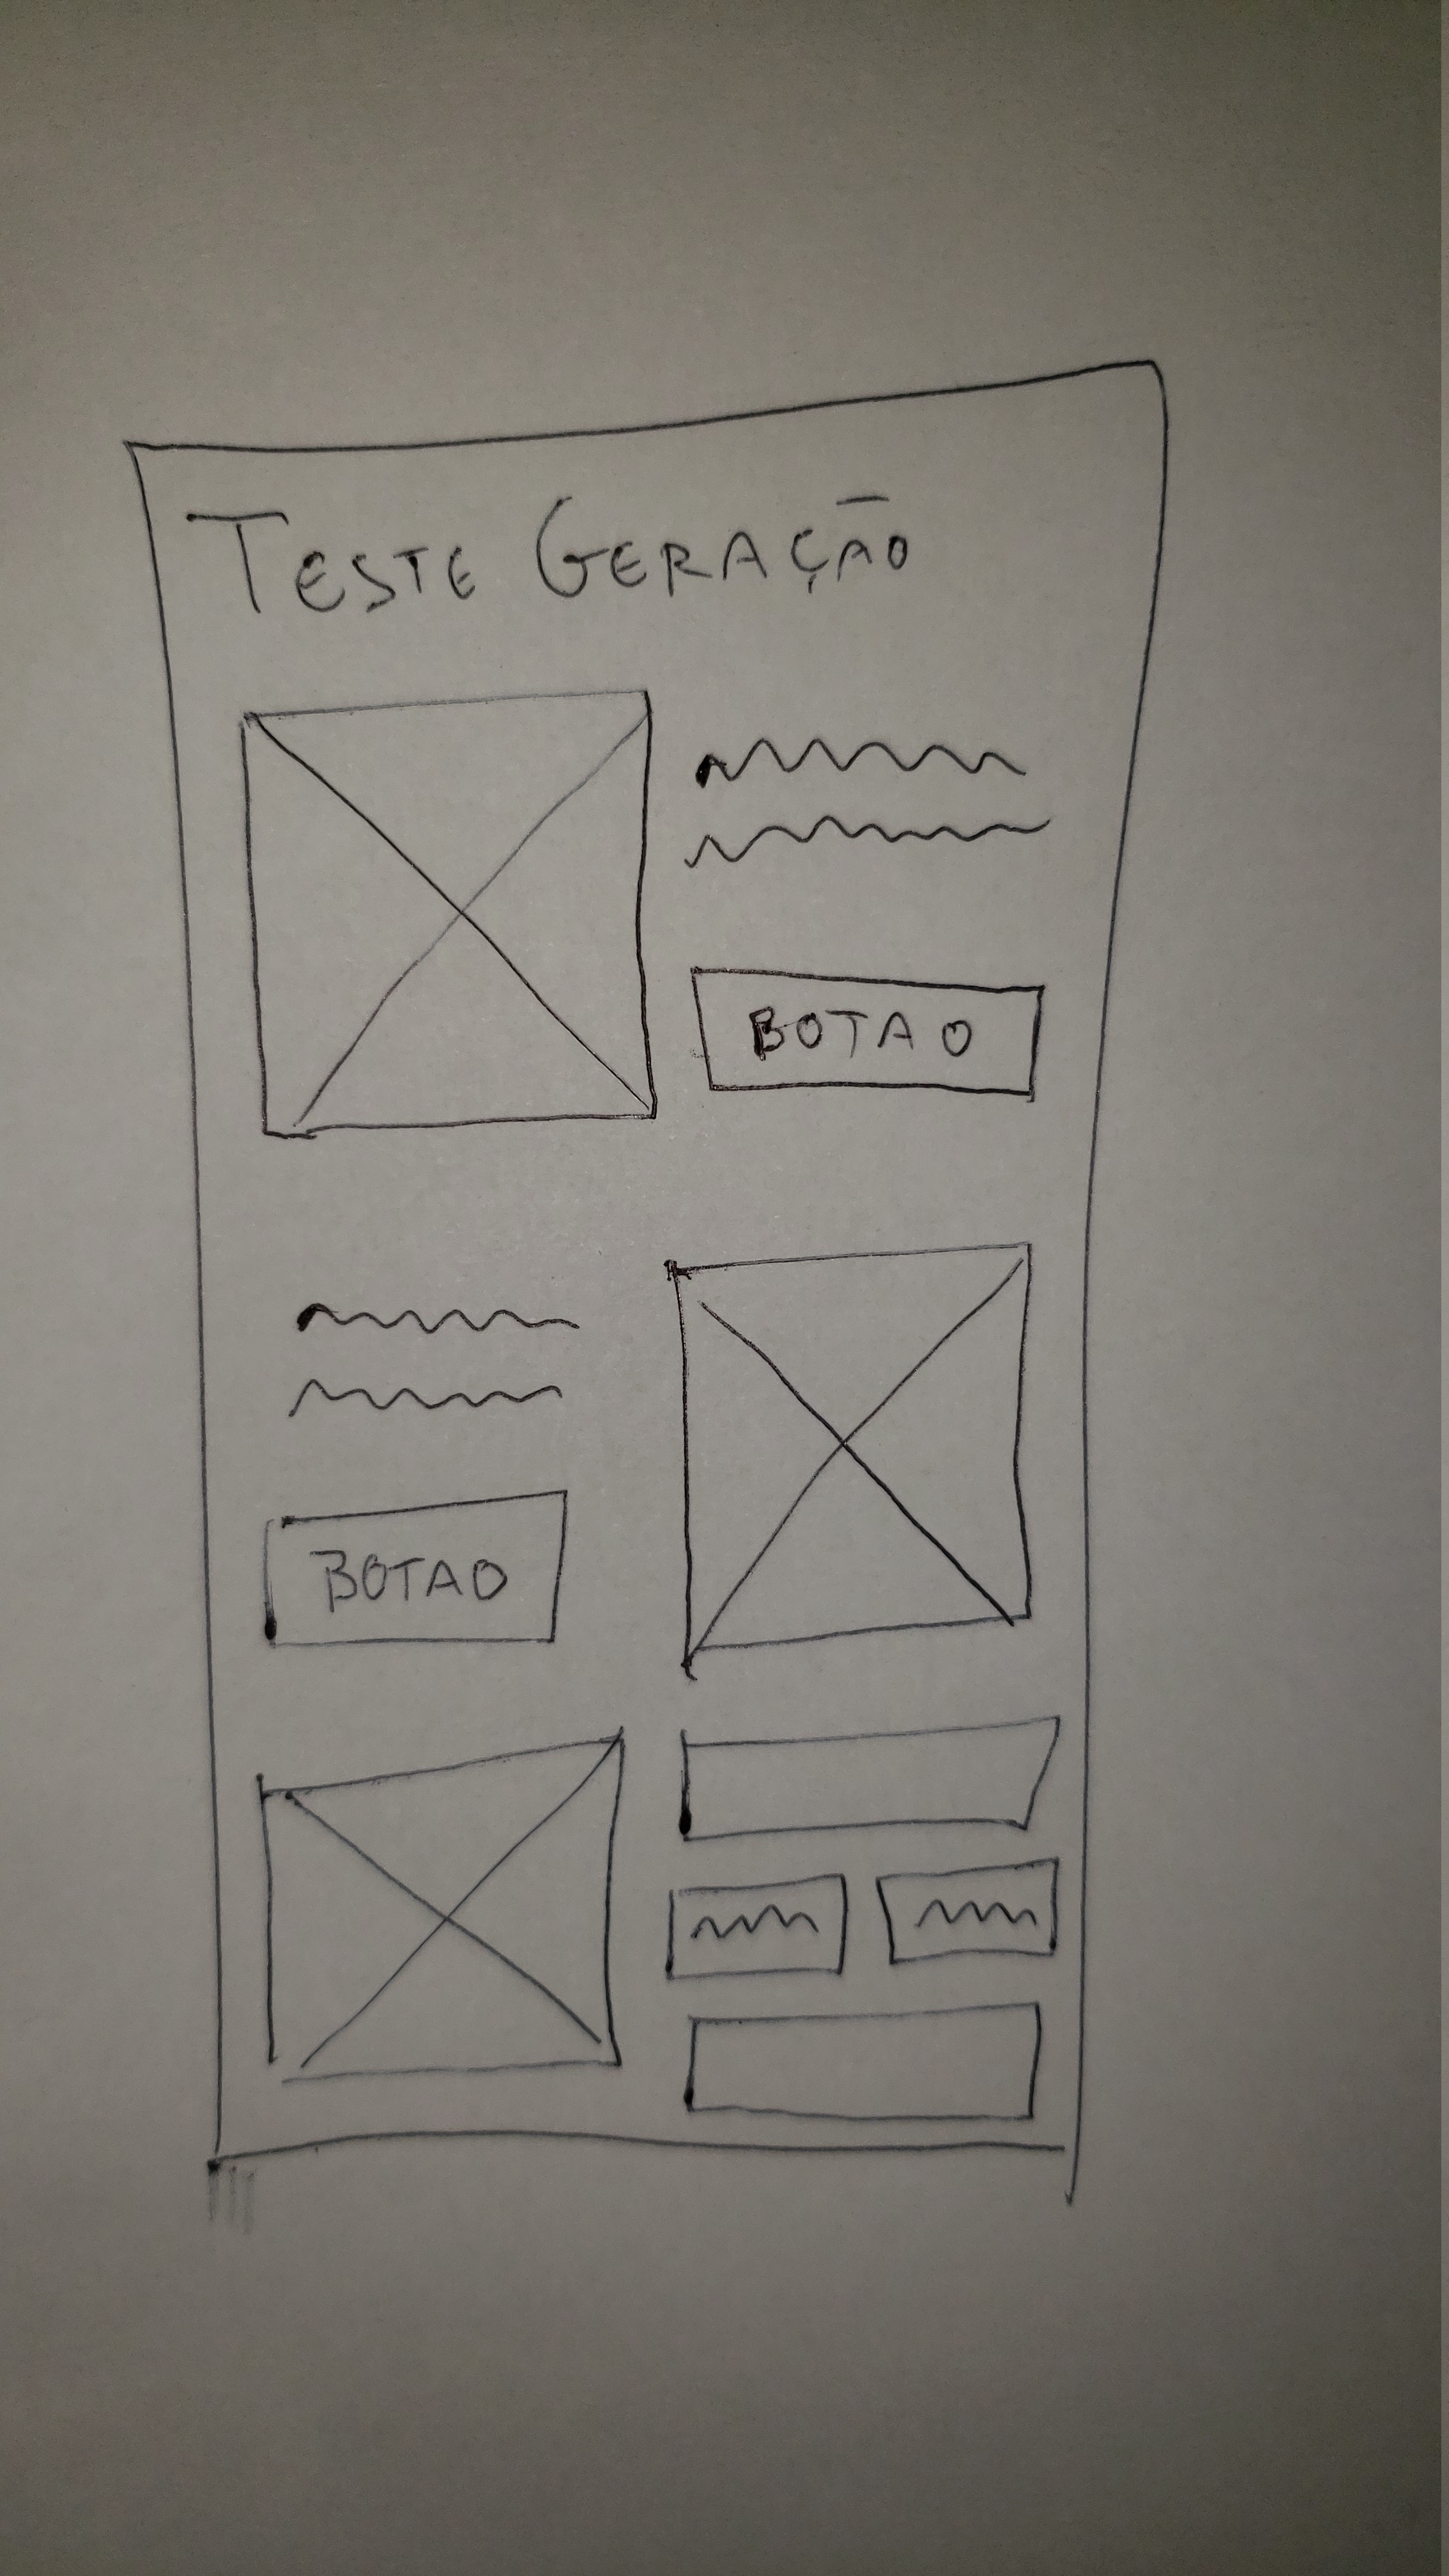 TESTE GERAÇÃO
BOTAO
BOTAO